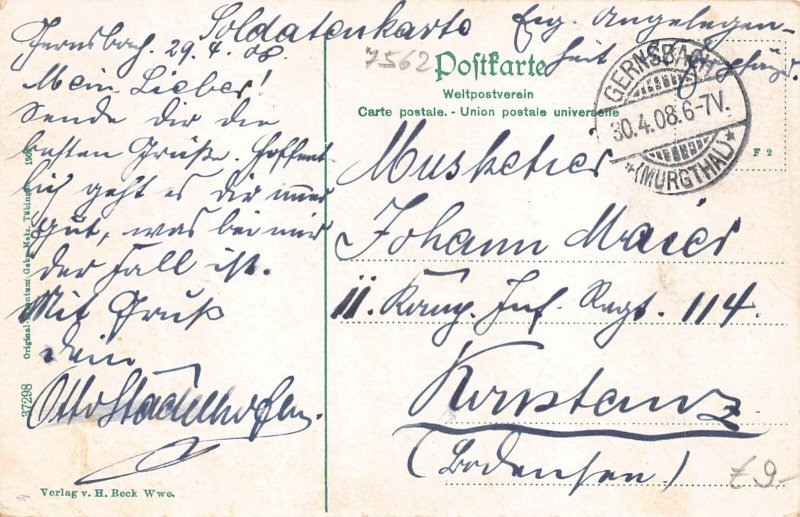 Soldatenkarte Eig. Angelegen-
heit
Gernsbach. 29.4.08.
Mein Lieber!
Sende dir die
besten Grüße. Hoffent-
lich geht es dir immer
gut, was bei mir
der Fall ist.
Mit Gruß
dein
Otto Stadelhofer.
7562
Postkarte
Weltpostverein
Carte postale. - Union postale universelle
GERNSBACH
30.4.08.6-7V.
*(MURGTHAL)*
F 2
Musketier
Johann Maier
11. Komp. Inf. Regt. 114
Konstanz
(Bodensee)
£9-
37298
Verlag v. H. Beck Wwe.